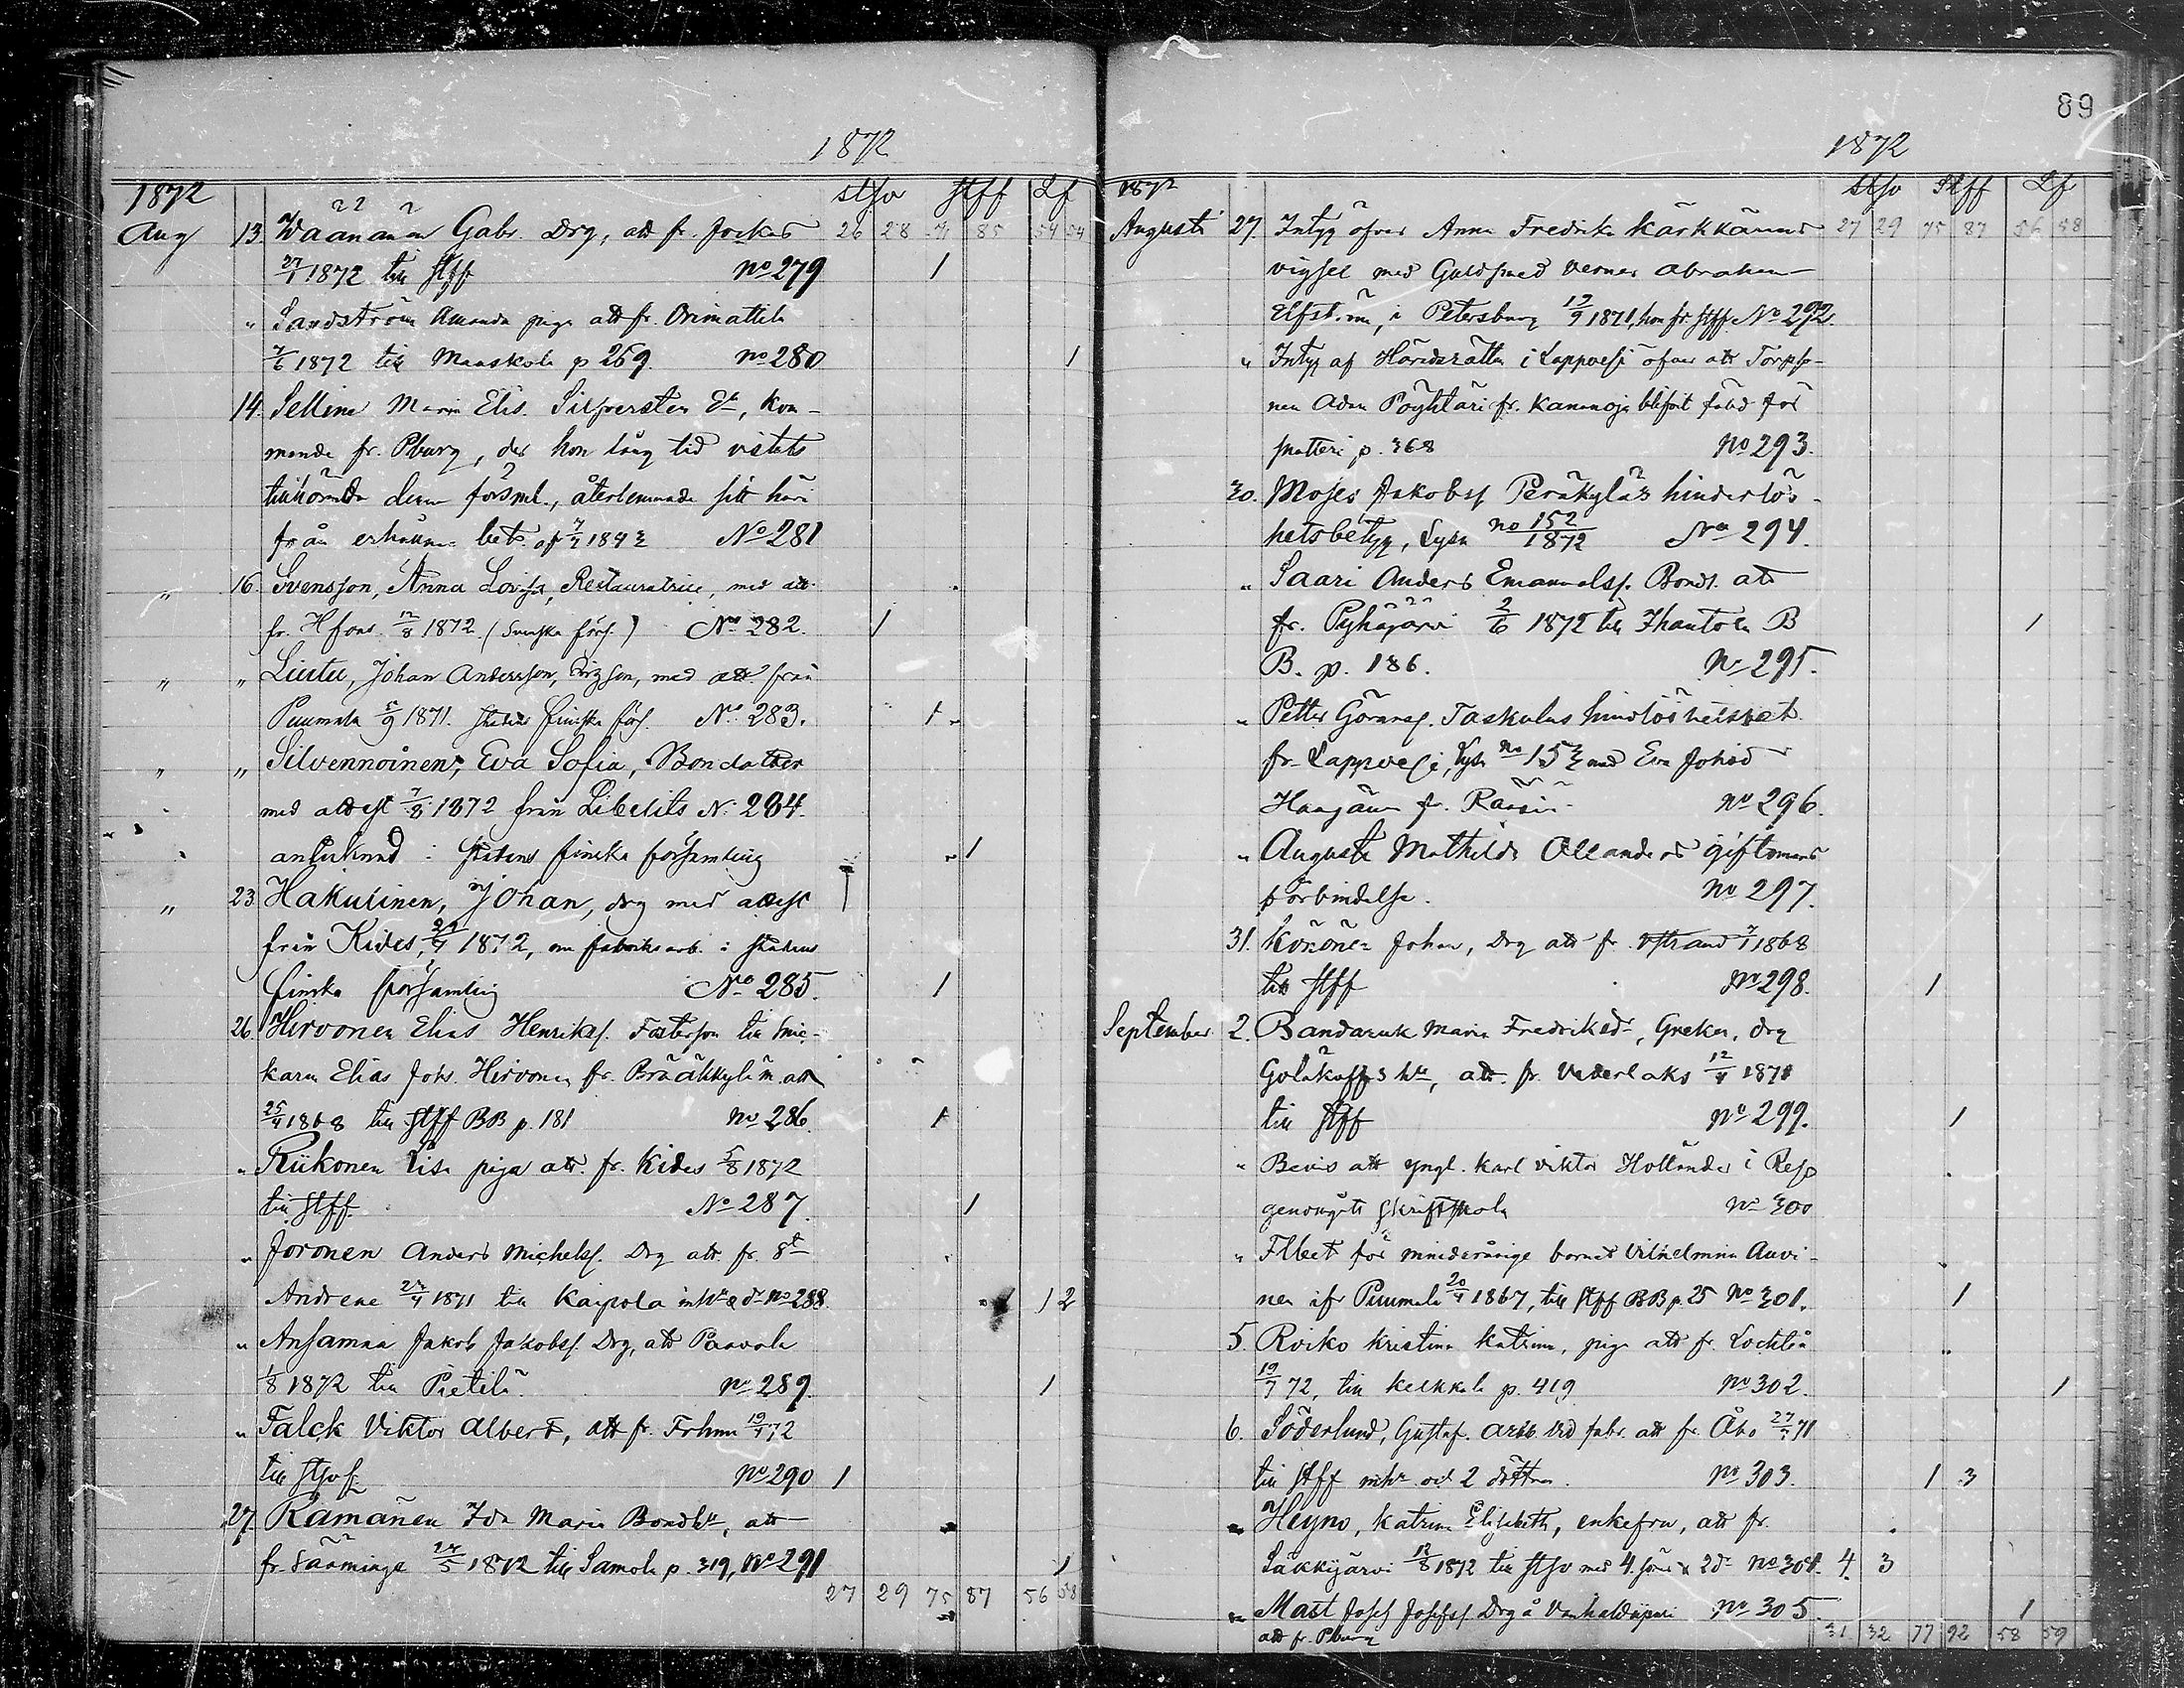 89
1872
1872 stsv stff Lf
Aug 13. Wäänänen Gabr. Drg, att fr. Jockas 26 28 71 85 54 54
27/1 1872 till stff No 279 1
" Sandström Amanda piga att fr. Orimattila
7/6 1872 till Maaskola p 259. No 280 1
14. Sellina Maria Elis. Silfversten Et, kom-
mande fr. Pburg, der hon lång tid vistats
tillhörande denna förs ml., återlemnade sitt häri
från erhållna bet. af 7/7 184 No 281
" 16. Svensson, Anna Lovisa, Restauratrice, med att.
fr. Hfors 12/8 1872. (Svenska förs.) No 282. 1
" " Liutu, Johan Andersson, Drgson, med att från
Puumala 5/9 1871. Stadens finska förs. No 283. 1
" " Silvennoinen, Eva Sofia, Bondedotter
med attest 7/8 1872 från Libelits No 284.
antecknad i stadens finska församling 1
" 23 Hakulinen, Johan, drg med attest
från Kides, 27/7 1872, om fabriksarb. i stadens
finska församling No 285. 1
26. Hirvonen Elias Henrikss. Fosterson till
karen Elias Johs. Hirvonen fr. Bråäkkylä m. att
25/4 1868 till Stff BB p. 181 No 286. 1
" Riikonen Lisa piga att. fr. Kides 5/8 1872
till stff. No 287. 1
" Joronen Anders Michelss. Drg att fr. St
Andreae 27/4 1871 till Kaipola m hu & dr No 288. 1 2
" Ansamaa Jakob Jakobss. Drg, att Paavola
1/8 1872 till Pietilä. No 289. 1
" Falck Viktor Albert, att fr. Frhmn 19/7 72
till stsvf No 290 1
27. Rämänen Ida Maria Bondhu, att
fr. Sääminge 24/5 1872 till Samola p. 319, No 291 1
27 29 75 87 56 58
1872
1872 stsv Stff Lf
Augusti 27. Intyg öfver Anna Fredrika Kärkkäinens 27 29 75 87 56 58
vigsel med Guldsmed Verner Abraham
Elfström, i Petersburg 19/9 1871, hon fr. stff No 292.
" Intyg af Häradsrätten i Lappvesi öfver att Torpso-
nen Adam Pöyhtäri fr. Kananoja blifvit fälld för
snatteri p. 368 No 293.
30. Moses Jakobss. Peräkyläs hinderlös-
hetsbetyg, Lysn No 152/1872 No 294.
" Saari Anders Emanuelss. Bonds. att
fr. Pyhäjärvi 2/6 1872 till Ihantola B
B. p. 186. No 295. 1
" Petter Göranss. Taskulas hinderlöshetsbet.
fr. Lappvesi, Lysn No 153 med Eva Johsd
Haajanen fr. Räisin No 296.
" Augusta Mathilda Ollanders giftomans
förbindelse. No 297.
31. Könönen Johan, Drg att fr. Ystrand 7/1 1868
till stff No 298. 1
September 2. Bandaruk Maria Fredriksdr, Greken, drg
Golakoffs hu, att. fr. Vederlaks 12/4 1871
till stff No 299. 1
" Bevis att yngl. Karl Viktor Hollander i Resp
genomgått skriftskola No 300
" Flbet för minderåriga barnet Vilhelmina Auvi-
nen ifr Puumala 20/4 1867, till stff BB p. 25 No 301. 1
5. Roiko Kristina Katrina, piga att fr. Lochteå
19/7 72, till Kelkkala p. 419 No 302. 1
6. Söderlund, Gustaf. Arbb. vid fabr. att fr. Åbo 27/7 71
till stff m hu och 2 döttrar. No 303. 1 3
" Heyno, Katrina Elisabeth, enkefru, att fr.
Säkkijärvi 12/8 1872 till stsv med 4 söner & 2 dr No 304. 4. 3
" Mast Josef Josefss. Drg å Vanhaldiipuri No 305. 1
att fr. Pburg 31 32 77 92 58 59